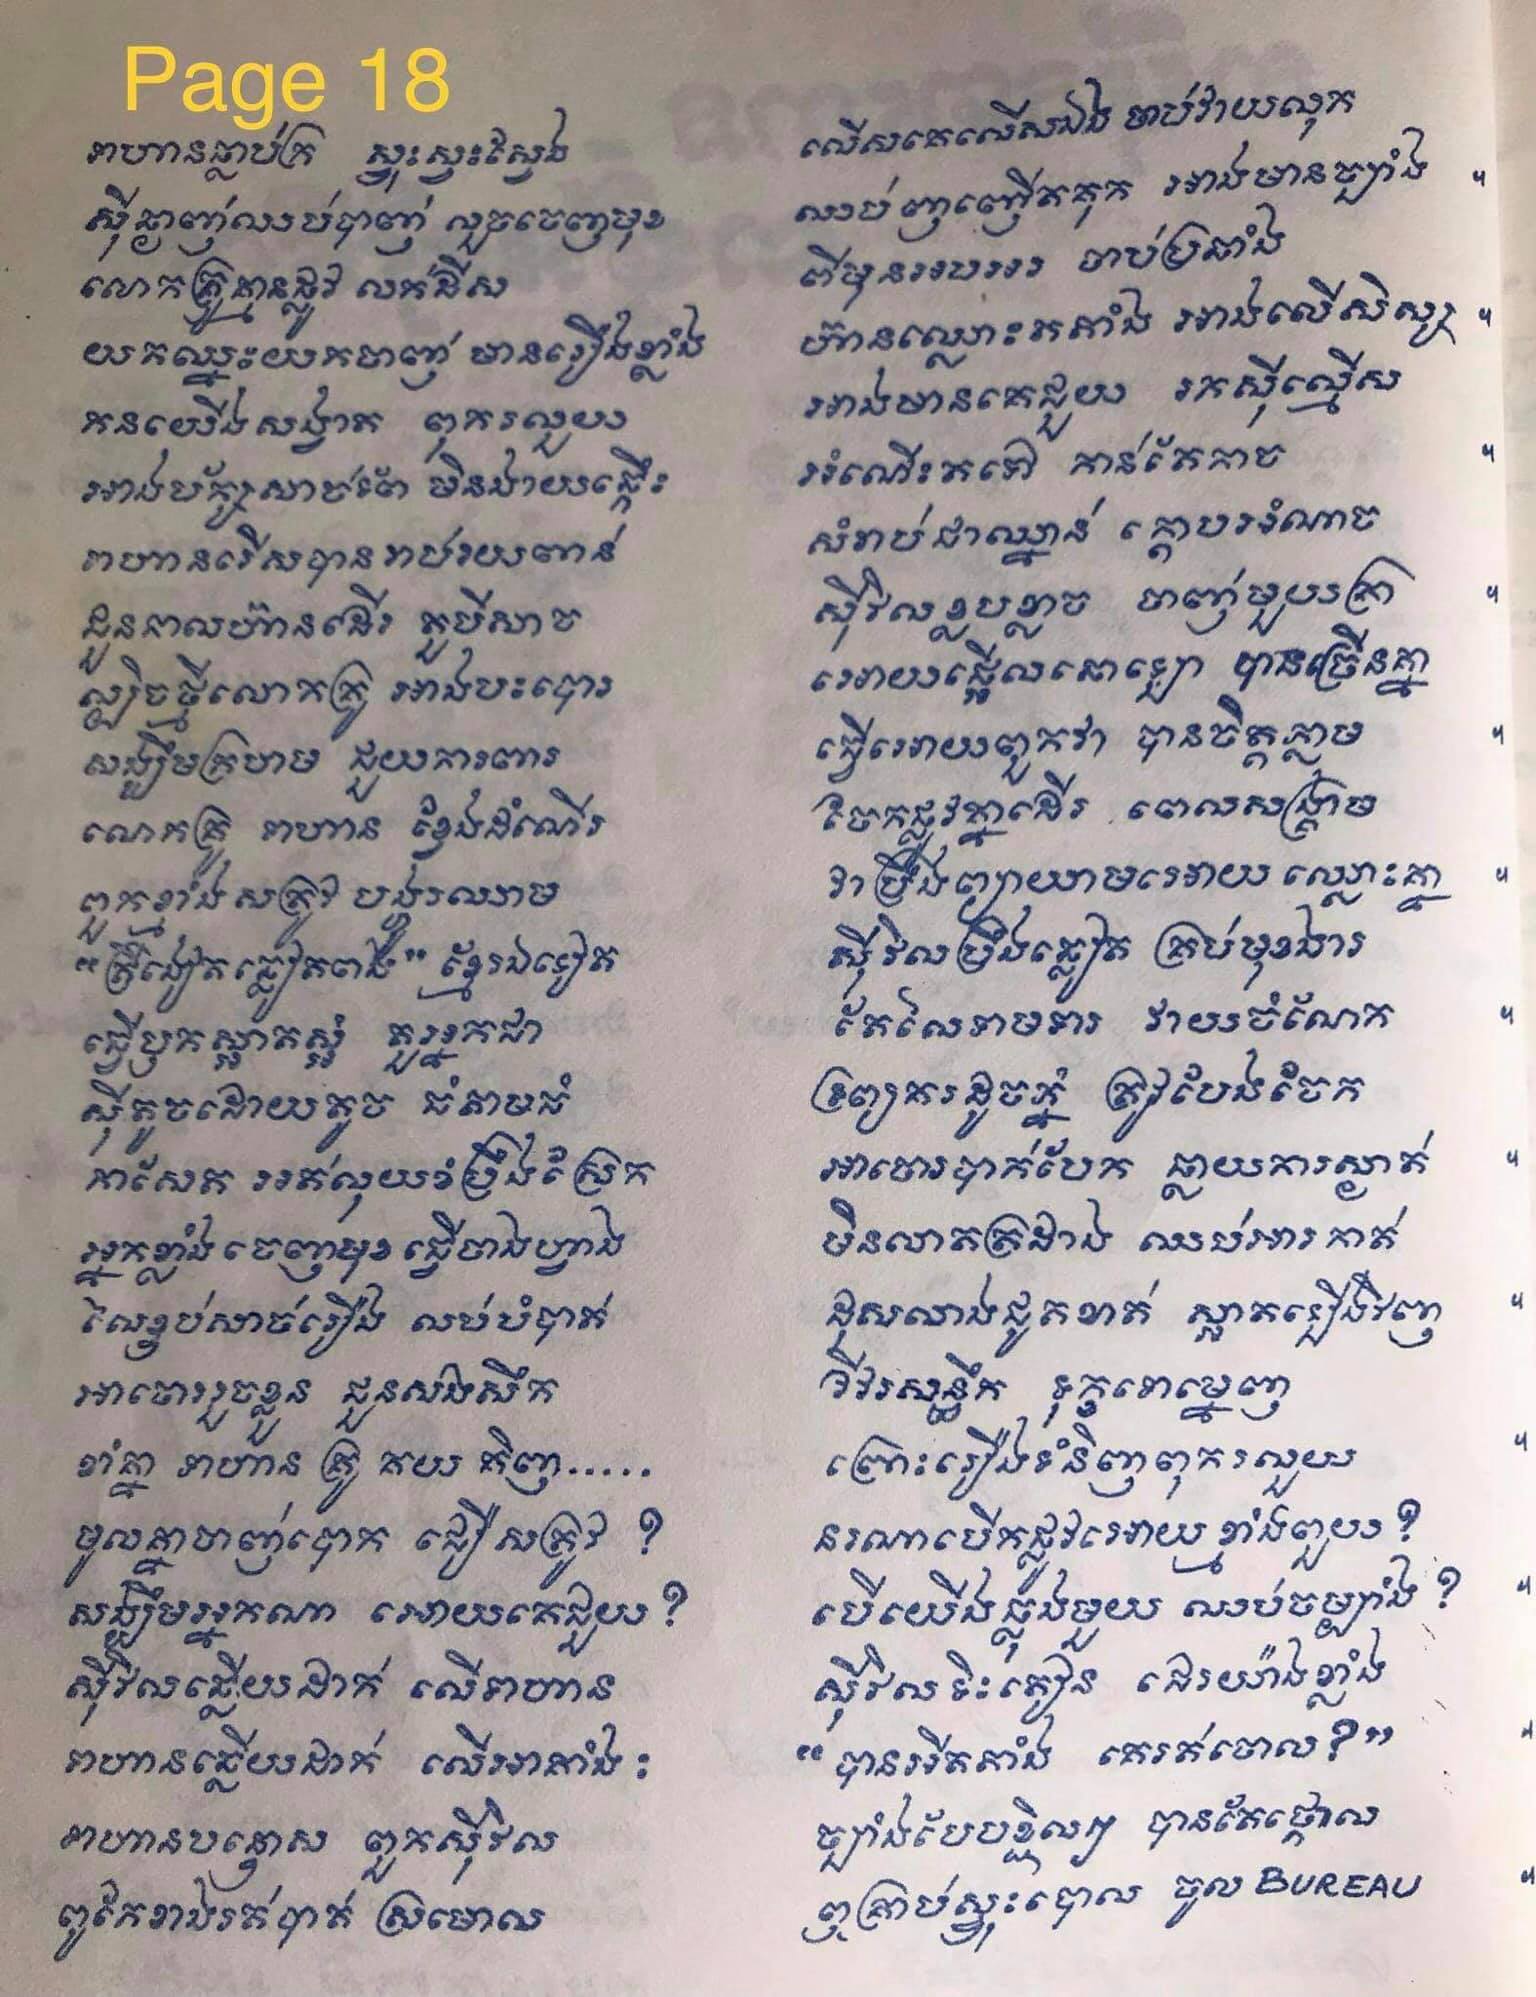 Page 18
ទាហានធ្លាប់ក្រ ស្វះស្វះស្វែង
លើសគេលើសឯង ចាប់វាយលុក
ស៊ីឆ្ងាញ់ឈប់បាញ់ លួចចេញមុខ
ឈប់ញញើតគុក អាងមានច្បាំង ។
លោកគ្រូគ្មានផ្លូវ លក់ជីស
ពីមុនអបអរ ចាប់ប្រឆាំង
យកឈ្នះយកចាញ់ មានរឿងខ្លាំង
ហ៊ានឈ្លោះតតាំង អាងលើសិស្ស ។
កនយើងសង្វាត ពុករលួយ
អាងមានគេជួយ រកស៊ីស្មើស
អាងបក្សសាច់ មិនងាយ
អំណើះតទៅ កាន់តែកាច ។
ទាហានរើសបានរាប់រយពាន់
សំរាប់ជាឈ្នាន់ ក្តោបអំណាច
ជួនកាលហ៊ានដើរ តួបីសាច
ស៊ីវិលខ្លបខ្លាច ចាញ់មួយគ្រា ។
ល្បិចថ្មីលោកគ្រូ អាងបះបោរ
អោយផ្អើលឡោ បានច្រើនគ្នា
សង្ឃឹមក្រហម ជួយការពារ
ធ្វើអោយពួកវា បានចិត្តភ្លាម ។
លោកគ្រូ ទាហាន ខ្វែងដំណើរ
ចែកផ្លូវគ្នាដើរ ពេលសង្គ្រាម
ពួកខ្មាំងសត្រូវ បង្ហូរឈាម
វាប្រឹងព្យាយាមអោយ ឈ្លោះគ្នា ។
“ត្រីងៀតឆ្លៀតពង” ខ្មែរឯទៀត
ស៊ីវិលប្រឹងឆ្លៀត គ្រប់មុខងារ
ធ្វើឫកស្អាតស្អំ តួអ្នកជា
តែលៃទាមទារ វាយចំណែក ។
ស៊ីតូចដោយតូច ធំតាមធំ
ទ្រព្យករដូចភ្នំ ត្រូវបែងចែក
កាសែត អត់លុយខំប្រឹងស្រែក
អាចោរបាក់បែក ឆ្លាយការស្ងាត់ ។
អ្នកខ្លាំងចេញមុខ ធ្វើចាងហ្វាង
មិនលាតត្រដាង ឈប់អារកាត់
លៃខ្ទប់សាច់រឿង លប់បំបាត់
ដុសលាងជូតខាត់ ស្អាតរឿងវិញ ។
អាចោររួចខ្លួន ជួនសងសឹក
វីវរសន្ធឹក ទុក្ខទោម្នេញ
ខាំគ្នា ទាហាន គ្រូ គយ តិញ.....
ព្រោះរឿងទំនិញពុករលួយ ។
មូលគ្នាចាញ់បោក ជឿសត្រូវ ?
នរណាបើកផ្លូវអោយខ្មាំងព្យួយ ?
សង្ឃឹមអ្នកណា អោយគេជួយ ?
បើយើងធ្លុងមួយ ឈប់ចម្បាំង ? ។
ស៊ីវិលឆ្លើយដាក់ លើទាហាន
ស៊ីវិលទិះតៀន ជេរយ៉ាងខ្លាំង
ទាហានឆ្លើយដាក់ លើអាតាំង:
“បានអីតតាំង គេរត់ចោល ?” ។
ទាហានបន្ទោស ពួកស៊ីវិល
ច្បាំងបែបខ្ជិលៗ បានតែថ្កោល
ពូកែខាងរត់បាត់ ស្រមោល
ឮគ្រាប់ស្ទុះបោល ចូល BUREAU ។